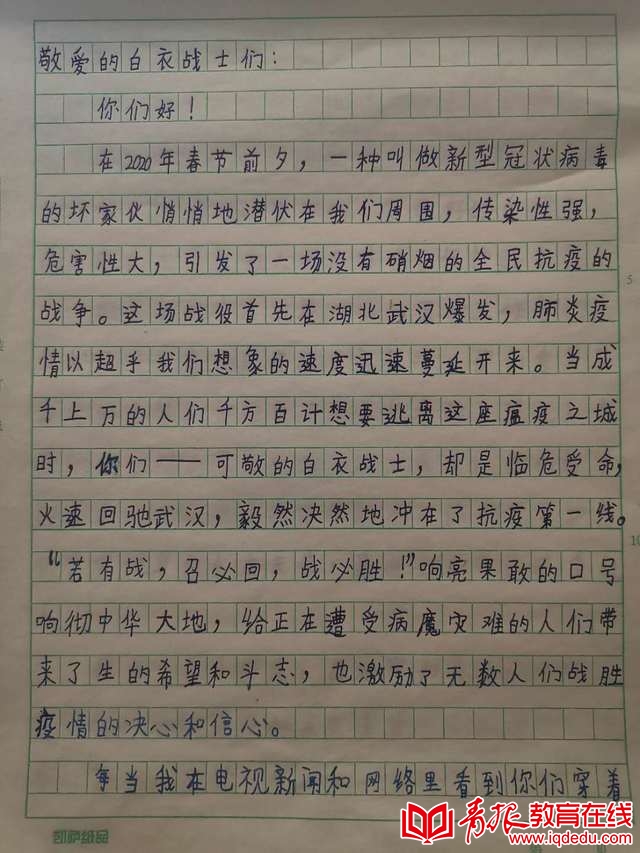 敬爱的白衣战士们：
你们好！
在2020年春节前夕，一种叫做新型冠状病毒
的坏家伙悄悄地潜伏在我们周围，传染性强，
危害性大，引发了一场没有硝烟的全民抗疫的
战争。这场战役首先在湖北武汉爆发，肺炎疫
情以超乎我们想象的速度迅速蔓延开来。当成
千上万的人们千方百计想要逃离这座瘟疫之城
时，你们——可敬的白衣战士，却是临危受命，
火速回驰武汉，毅然决然地冲在了抗疫第一线。
“若有战，召必回，战必胜！”响亮果敢的口号
响彻中华大地，给正在遭受病魔灾难的人们带
来了生的希望和斗志，也激励了无数人们战胜
疫情的决心和信心。
每当我在电视新闻和网络里看到你们穿着
5
10
凯萨纸品
青报教育在线
www.iqdedu.com